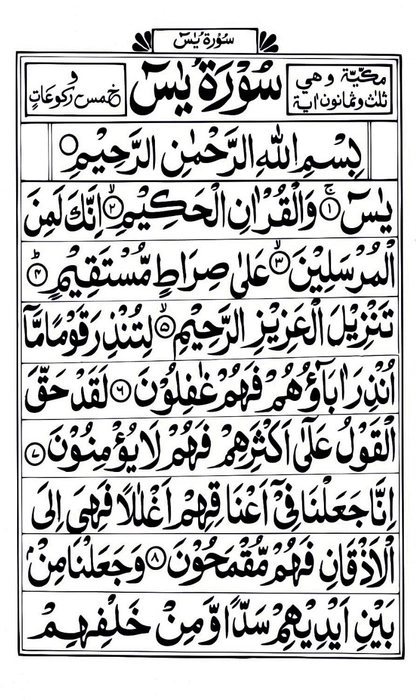 سُوْرَةُ يٰسٓ
مَكِّيَّةٌ وَّهِيَ
ثَلٰثٌ وَّثَمَانُوْنَ اٰيَةً
سُوْرَةُ يٰسٓ
وَّ
خَمْسُ رُكُوْعَاتٍ
بِسْمِ اللّٰهِ الرَّحْمٰنِ الرَّحِيْمِ
يٰسٓ ۚ﴿۱﴾ وَالْقُرْاٰنِ الْحَكِيْمِ ۙ﴿۲﴾ اِنَّكَ لَمِنَ
الْمُرْسَلِيْنَ ۙ﴿۳﴾ عَلٰى صِرَاطٍ مُّسْتَقِيْمٍ ؕ﴿۴﴾
تَنْزِيْلَ الْعَزِيْزِ الرَّحِيْمِ ۙ﴿۵﴾ لِتُنْذِرَ قَوْمًا مَّاۤ
اُنْذِرَ اٰبَاۤؤُهُمْ فَهُمْ غٰفِلُوْنَ ﴿۶﴾ لَقَدْ حَقَّ
الْقَوْلُ عَلٰٓى اَكْثَرِهِمْ فَهُمْ لَا يُؤْمِنُوْنَ ﴿۷﴾
اِنَّا جَعَلْنَا فِيْۤ اَعْنَاقِهِمْ اَغْلٰلًا فَهِيَ اِلَى
الْاَذْقَانِ فَهُمْ مُّقْمَحُوْنَ ﴿۸﴾ وَجَعَلْنَا مِنْۢ
بَيْنِ اَيْدِيْهِمْ سَدًّا وَّمِنْ خَلْفِهِمْ